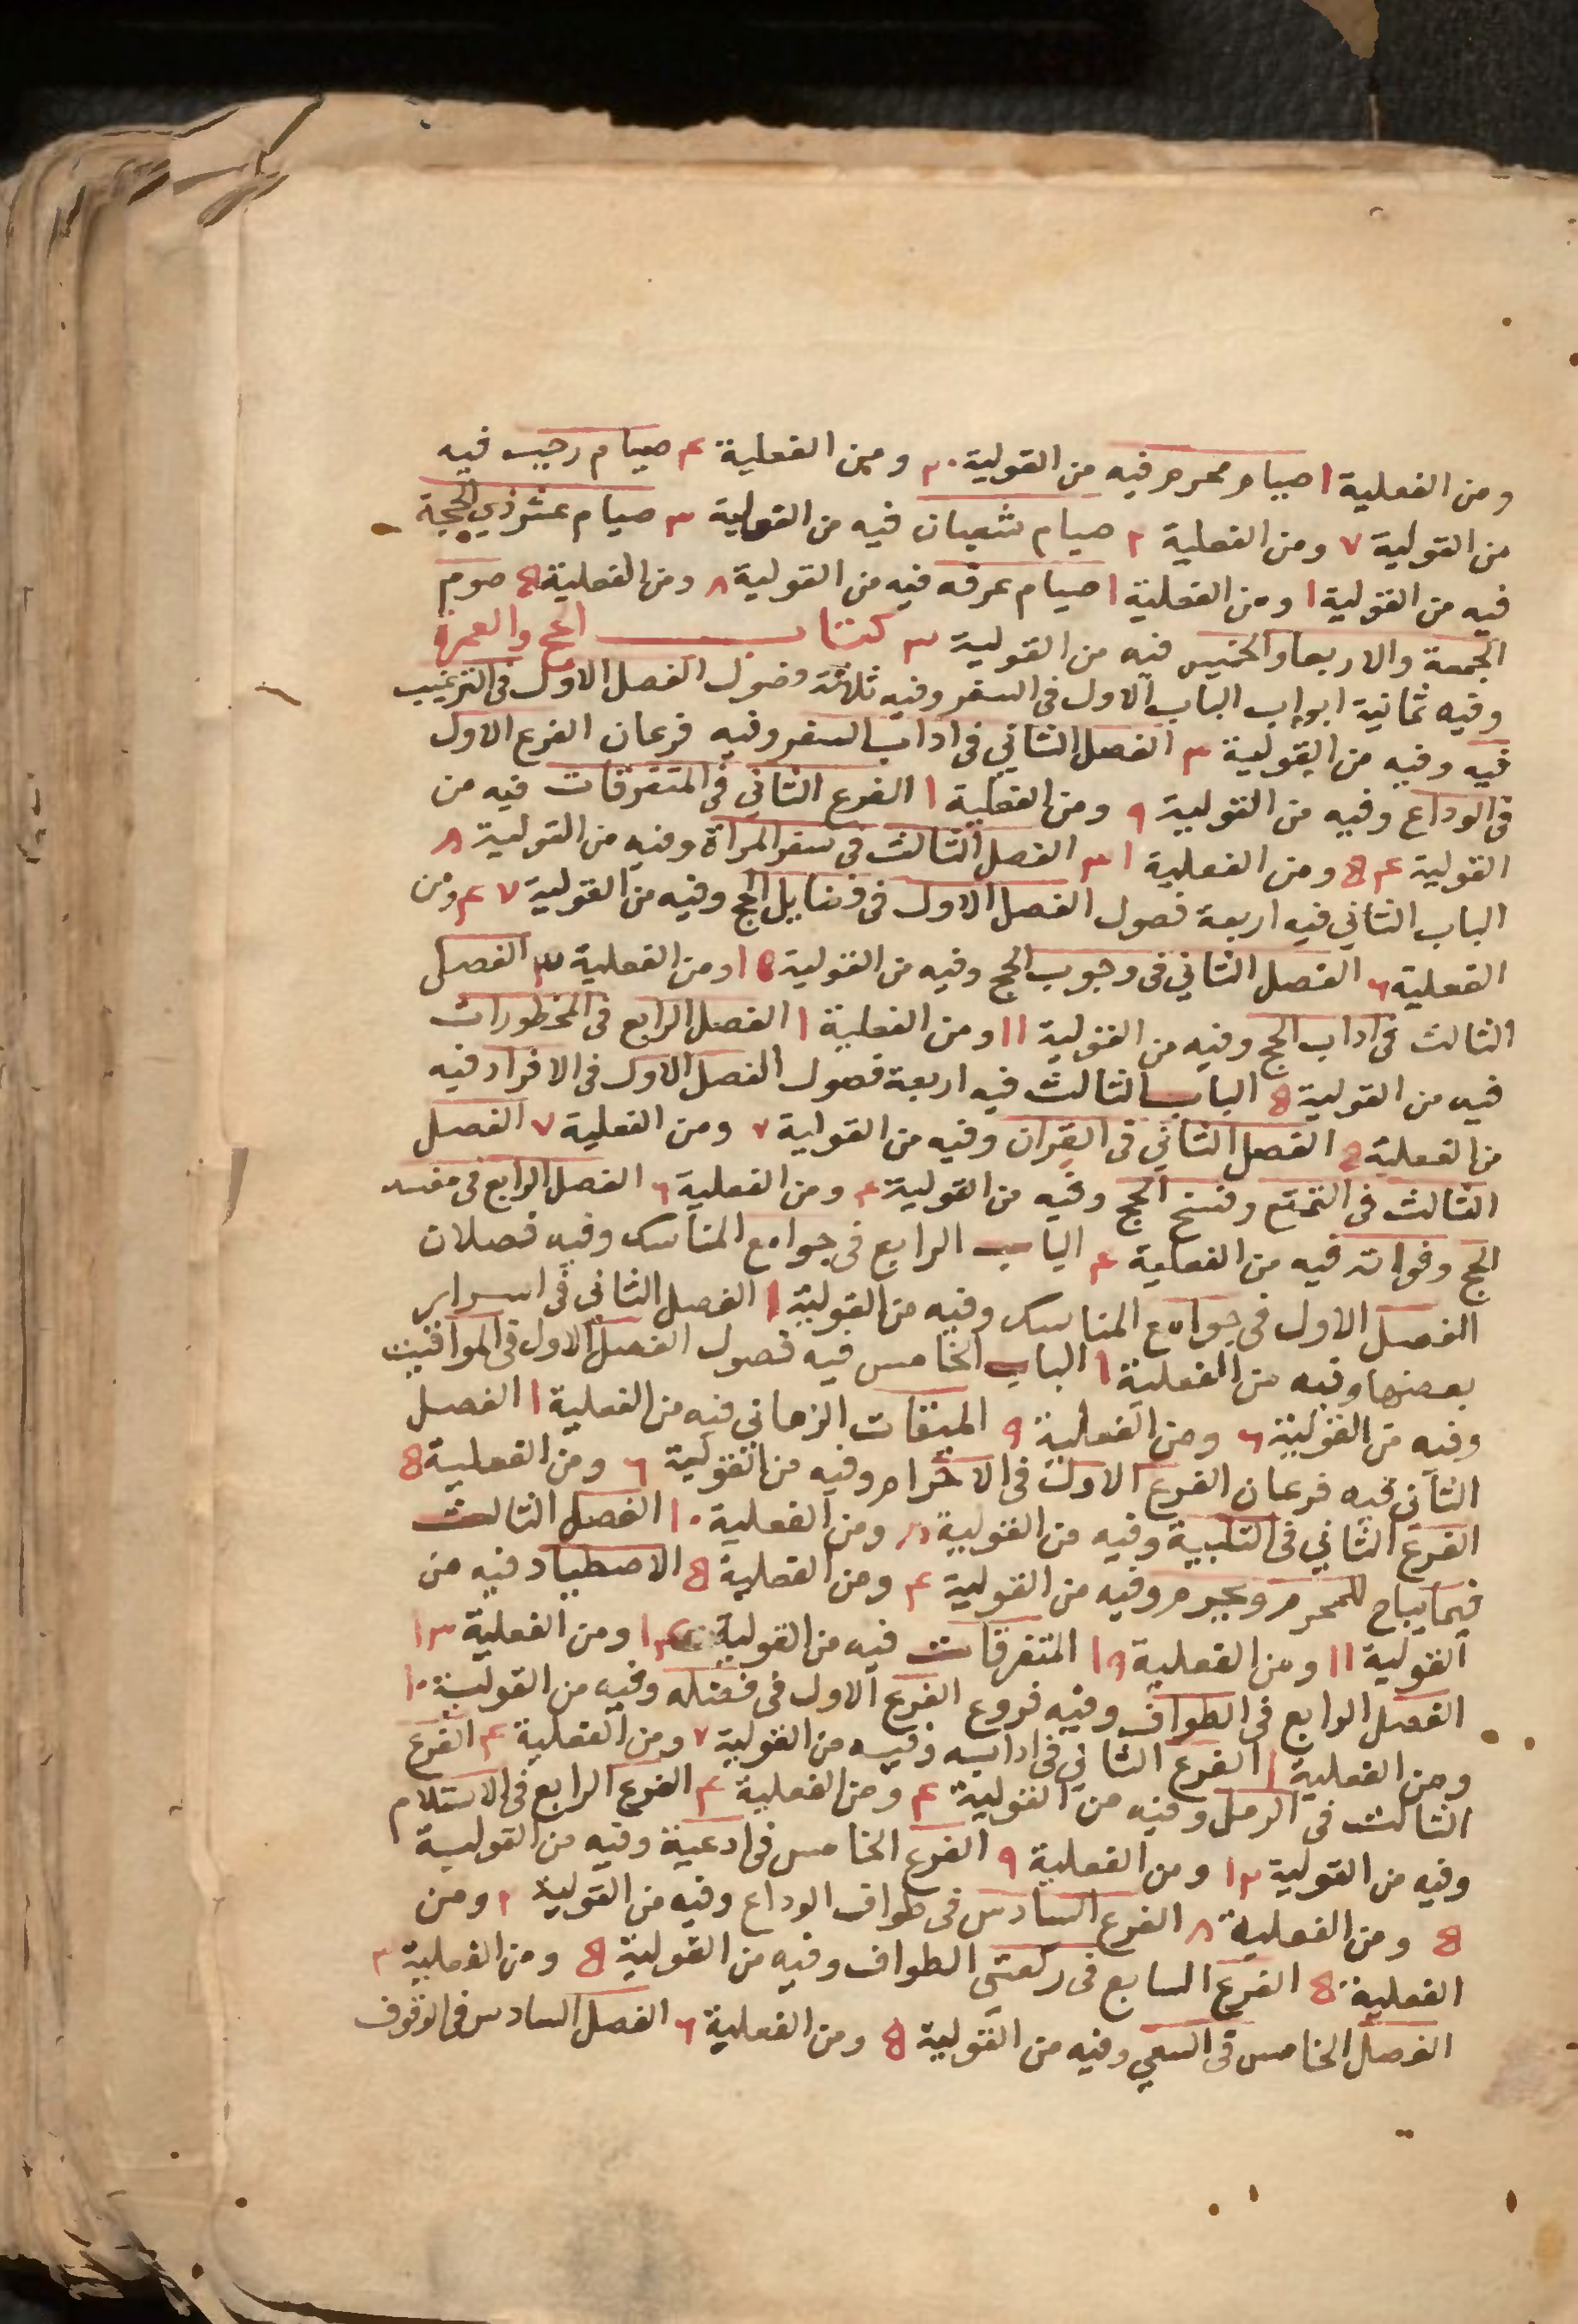 ومن الفعلية ١ صيام محرم فيه من القولية ٢٠ ومن الفعلية ٤ صيام رجب فيه
من القولية ٧ ومن الفعلية ٢ صيام شعبان فيه من القولية ٣ صيام عشر ذي الحجة
فيه من القولية ١ ومن الفعلية ١ صيام عرفه فيه من القولية ٨ ومن الفعلية ٥ صوم
الجمعة والاربعا والخميس فيه من القولية ٣ كتاب الحج والعمرة
وفيه ثمانية ابواب الباب الاول في السفر وفيه ثلاثة فصول الفصل الاول في الترغيب
فيه وفيه من القولية ٣ الفصل الثاني في اداب السفر وفيه فرعان الفرع الاول
في الوداع وفيه من القولية ٩ ومن الفعلية ١ الفرع الثاني في المتفرقات فيه من
القولية ٤٥ ومن الفعلية ١٣ الفصل الثالث في سفر المراة وفيه من القولية ٨
الباب الثاني فيه اربعة فصول الفصل الاول في فضايل الحج وفيه من القولية ٤٧ ومن
الفعلية ٦ الفصل الثاني في وجوب الحج وفيه من القولية ١٥ ومن الفعلية ٣ الفصل
الثالث في اداب الحج وفيه من القولية ١١ ومن الفعلية ١ الفصل الرابع في المحظورات
فيه من القولية ٥ الباب الثالث فيه اربعة فصول الفصل الاول في الافراد فيه
من الفعلية ٥ الفصل الثاني في القران وفيه من القولية ٧ ومن الفعلية ٧ الفصل
الثالث في التمتع وفسخ الحج وفيه من القولية ٤ ومن الفعلية ٦ الفصل الرابع في مفسد
الحج وفواته فيه من الفعلية ٤ الباب الرابع في جوامع المناسك وفيه فصلان
الفصل الاول في جوامع المناسك وفيه من القولية ١ الفصل الثاني في اسرار
بعضها وفيه من الفعلية ١ الباب الخامس فيه فصول الفصل الاول في المواقيت
وفيه من القولية ٦ ومن الفعلية ٩ الميقات الزماني فيه من الفعلية ١ الفصل
الثاني فيه فرعان الفرع الاول في الاحرام وفيه من القولية ٦ ومن الفعلية ٥
الفرع الثاني في التلبية وفيه من القولية ٨ ومن الفعلية ١٠ الفصل الثالث
فيما يباح للمحرم ويحرم وفيه من القولية ٤ ومن الفعلية ٥ الاصطياد فيه من
القولية ١١ ومن الفعلية ١٩ المتفرقات فيه من القولية ومن الفعلية ١٣
الفصل الرابع في الطواف وفيه فروع الفرع الاول في فضله وفيه من القولية ١٠
ومن الفعلية ١ الفرع الثاني في ادابه وفيه من القولية ٧ ومن الفعلية ٤ الفرع
الثالث في الرمل وفيه من القولية ٤ ومن الفعلية ٤ الفرع الرابع في الاستلام
وفيه من القولية ١٣ ومن الفعلية ٩ الفرع الخامس في ادعية وفيه من القولية
٥ ومن الفعلية ٨ الفرع السادس في طواف الوداع وفيه من القولية ٢ ومن
الفعلية ٥ الفرع السابع في ركعتي الطواف وفيه من القولية ٥ ومن الفعلية ٣
الفصل الخامس في السعي وفيه من القولية ٥ ومن الفعلية ٦ الفصل السادس في الوقوف